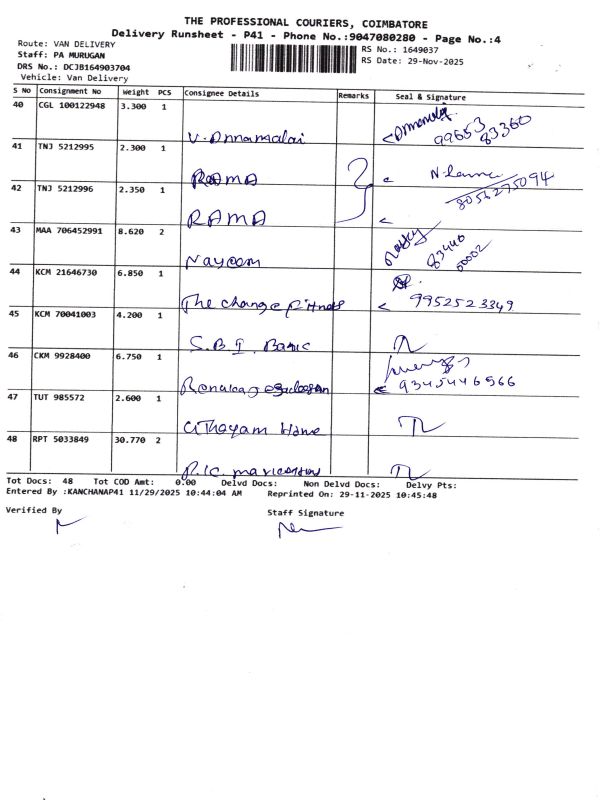 THE PROFESSIONAL COURIERS, COIMBATORE
Delivery Runsheet - P41 - Phone No.:9047080280 - Page No.:4
Route: VAN DELIVERY
Staff: PA MURUGAN
DRS No.: DCJB164903704
Vehicle: Van Delivery
RS No.: 1649037
RS Date: 29-Nov-2025
S No Consignment No Weight PCS Consignee Details Remarks Seal & Signature
40 CGL 100122948 3.300 1 V. Annamalai 99653 83360
41 TNJ 5212995 2.300 1 RAMA
42 TNJ 5212996 2.350 1 RAMA 8056275094
43 MAA 706452991 8.620 2 Nayeem 83440 50002
44 KCM 21646730 6.850 1 The change fitness 9952523349
45 KCM 70041003 4.200 1 S.B.I. Bank
46 CKM 9928400 6.750 1 9345446566
47 TUT 985572 2.600 1 Home
48 RPT 5033849 30.770 2
Tot Docs: 48 Tot COD Amt: 0.00 Delvd Docs: Non Delvd Docs: Delvy Pts:
Entered By :KANCHANAP41 11/29/2025 10:44:04 AM Reprinted On: 29-11-2025 10:45:48
Verified By
Staff Signature